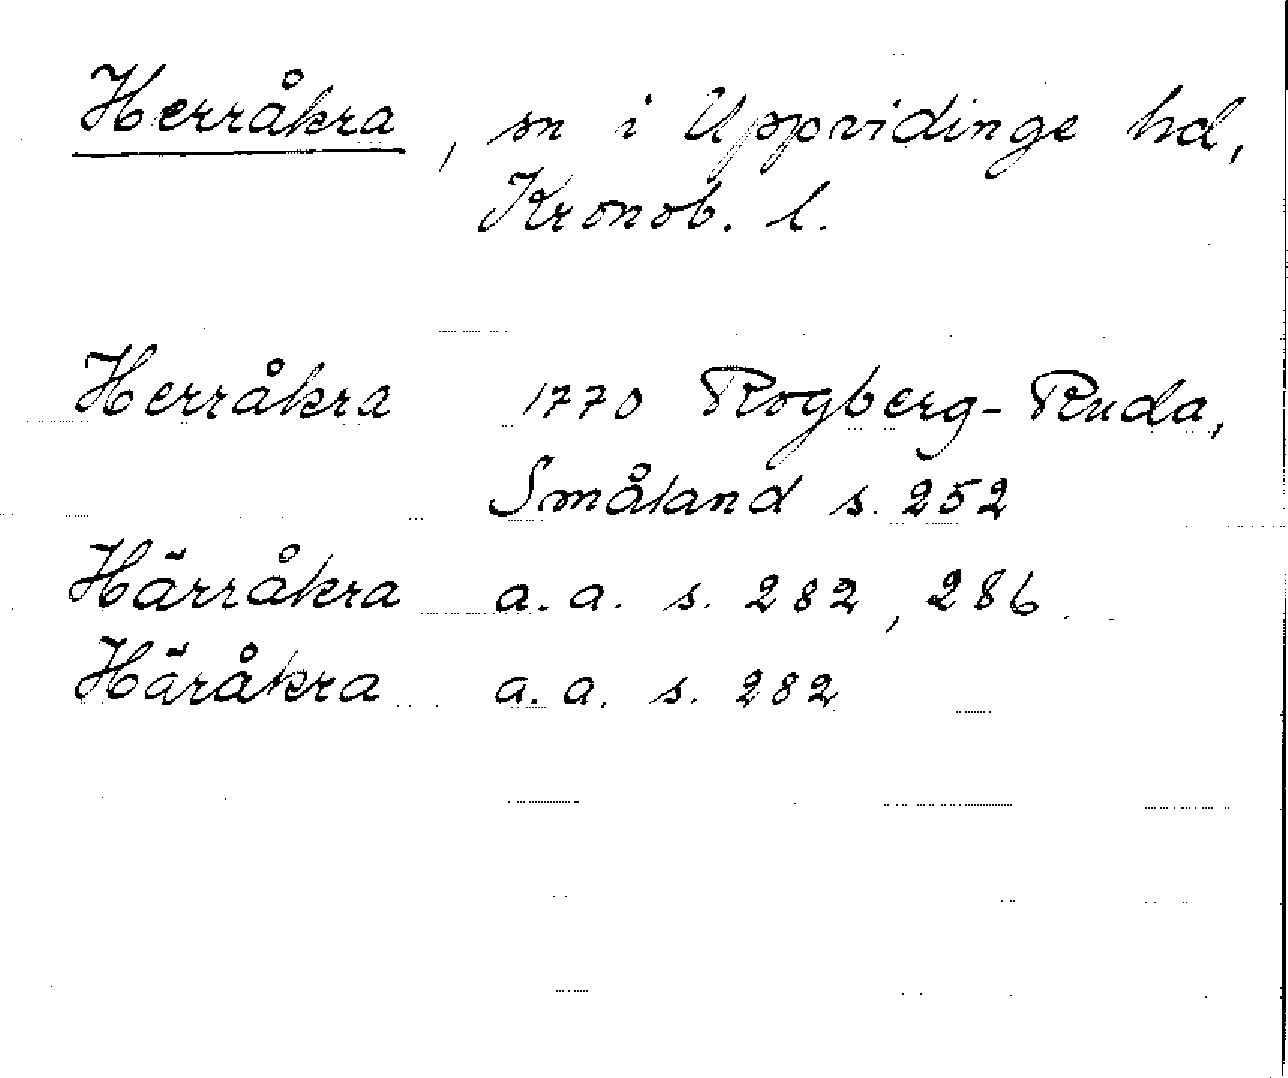 Herråkra, sn i Uppvidinge hd,
Kronob. l.
Herråkra 1770 Rogberg-Ruda,
Småland s. 252
Härråkra a.a. s. 282, 286.
Häråkra a.a. s. 282